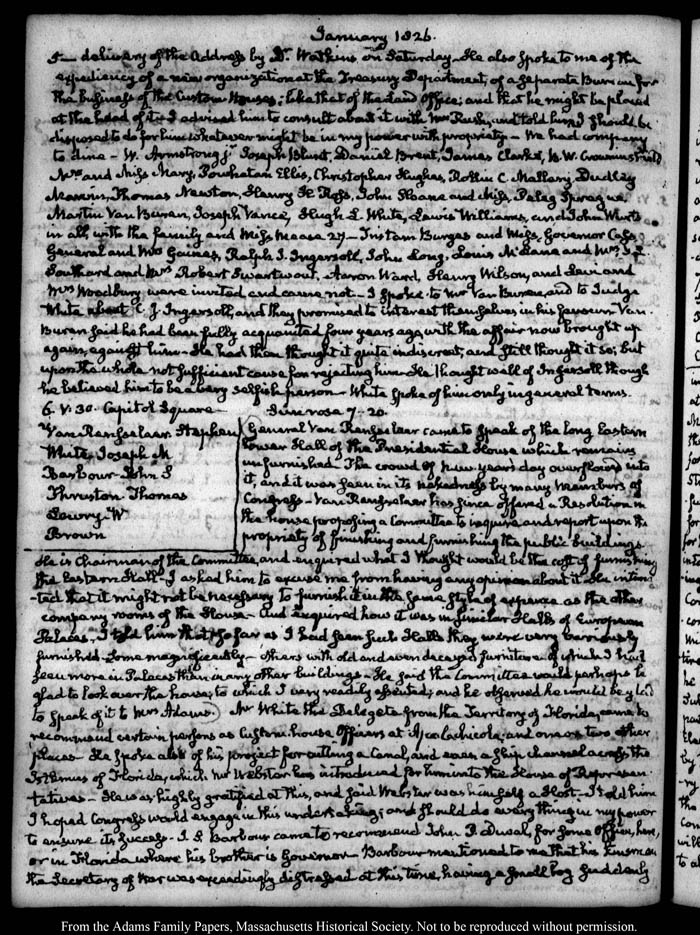 January 1826.
5— delivery of the Address by Dr. Watkins on Saturday. He also spoke to me of the
expediency of a new organization at the Treasury Department, of a separate Bureau for
the business of the Custom Houses; like that of the Land Office; and that he might be placed
at the head of it. I advised him to consult about it with Mr Rush, and told him I should be
disposed to do for him whatever might be in my power with propriety— We had company
to dine— W. Armstrong jr Joseph Blunt, Daniel Brent, James Clarke, B. W. Crowninshield
Mrs and Miss Mary, Powhatan Ellis, Christopher Hughes, Rollin C. Mallary, Dudley
Marvin, Thomas Newton, Henry H Ross, John Sloane and Miss, Peleg Sprague
Martin Van Buren, Joseph Vance, Hugh L. White, Lewis Williams, and John Wurts
in all, with the family and Miss Mease 27— Tristam Burges and Miss, Governor Cass,
General and Mrs Gaines, Ralph I. Ingersoll, John Long, Louis McLane and Mrs S. L.
Southard and Mrs Robert Swartwout, Aaron Ward, Henry Wilson, and Levi and
Mrs Woodbury were invited and came not— I spoke to Mr Van Buren, and to Judge
White about C. J. Ingersoll, and they promised to interest themselves in his favour. Van
Buren said he had been fully acquainted four years ago with the affair now brought up
again, against him— He had then thought it quite indiscreet, and still thought it so; but
upon the whole not sufficient cause for rejecting him. He thought well of Ingersoll though
he believed him to be a very selfish person— White spoke of him only in general terms.
6. V: 30. Capitol Square— Sun rose 7-20.
Van Rensselaer Stephen
White Joseph M
Barbour John S
Thruston Thomas
Lowry W
Brown
General Van Rensselaer came to speak of the long Eastern
lower Hall of the Presidential House which remains
unfurnished. The crowd of new year's day overflowed into
it, and it was seen in its nakedness by many Members of
Congress— Van Rensselaer has since offered a Resolution in
the house proposing a Committee to inquire and report upon the
propriety of finishing and furnishing the public buildings.
He is Chairman of the Committee, and enquired what I thought would be the cost of furnishing
the Eastern Hall— I asked him to excuse me from having any opinion about it. He intima-
-ted that it might not be necessary to furnish it in the same style of expence as the other
company rooms of the House— And enquired how it was in similar Halls of European
Palaces. I told him that so far as I had seen such Halls they were very variously
furnished— Some magnificently— others with old and even decayed furniture of which I had
seen more in Palaces than in any other buildings— He said the Committee would perhaps be
glad to look over the house, to which I very readily assented; and he observed he would be glad
to speak of it to Mrs Adams) Mr White the Delegate from the Territory of Florida, came to
recommend certain persons as Custom house Officers at Apalachicola, and one or two other
places— He spoke also of his project for cutting a Canal, and even a ship channel across the
Isthmus of Florida, which Mr Webster has introduced for him into the House of Represen-
tatives— He was highly gratified at this, and said Webster was himself a Host— I told him
I hoped Congress would engage in this undertaking; and should do every thing in my power
to ensure its success. J. S. Barbour came to recommend John P. Duval, for some Office, here,
or in Florida where his brother is Governor— Barbour mentioned to me that his kinsman
the Secretary of War was exceedingly distressed at this time, having a small boy suddenly
From the Adams Family Papers, Massachusetts Historical Society. Not to be reproduced without permission.